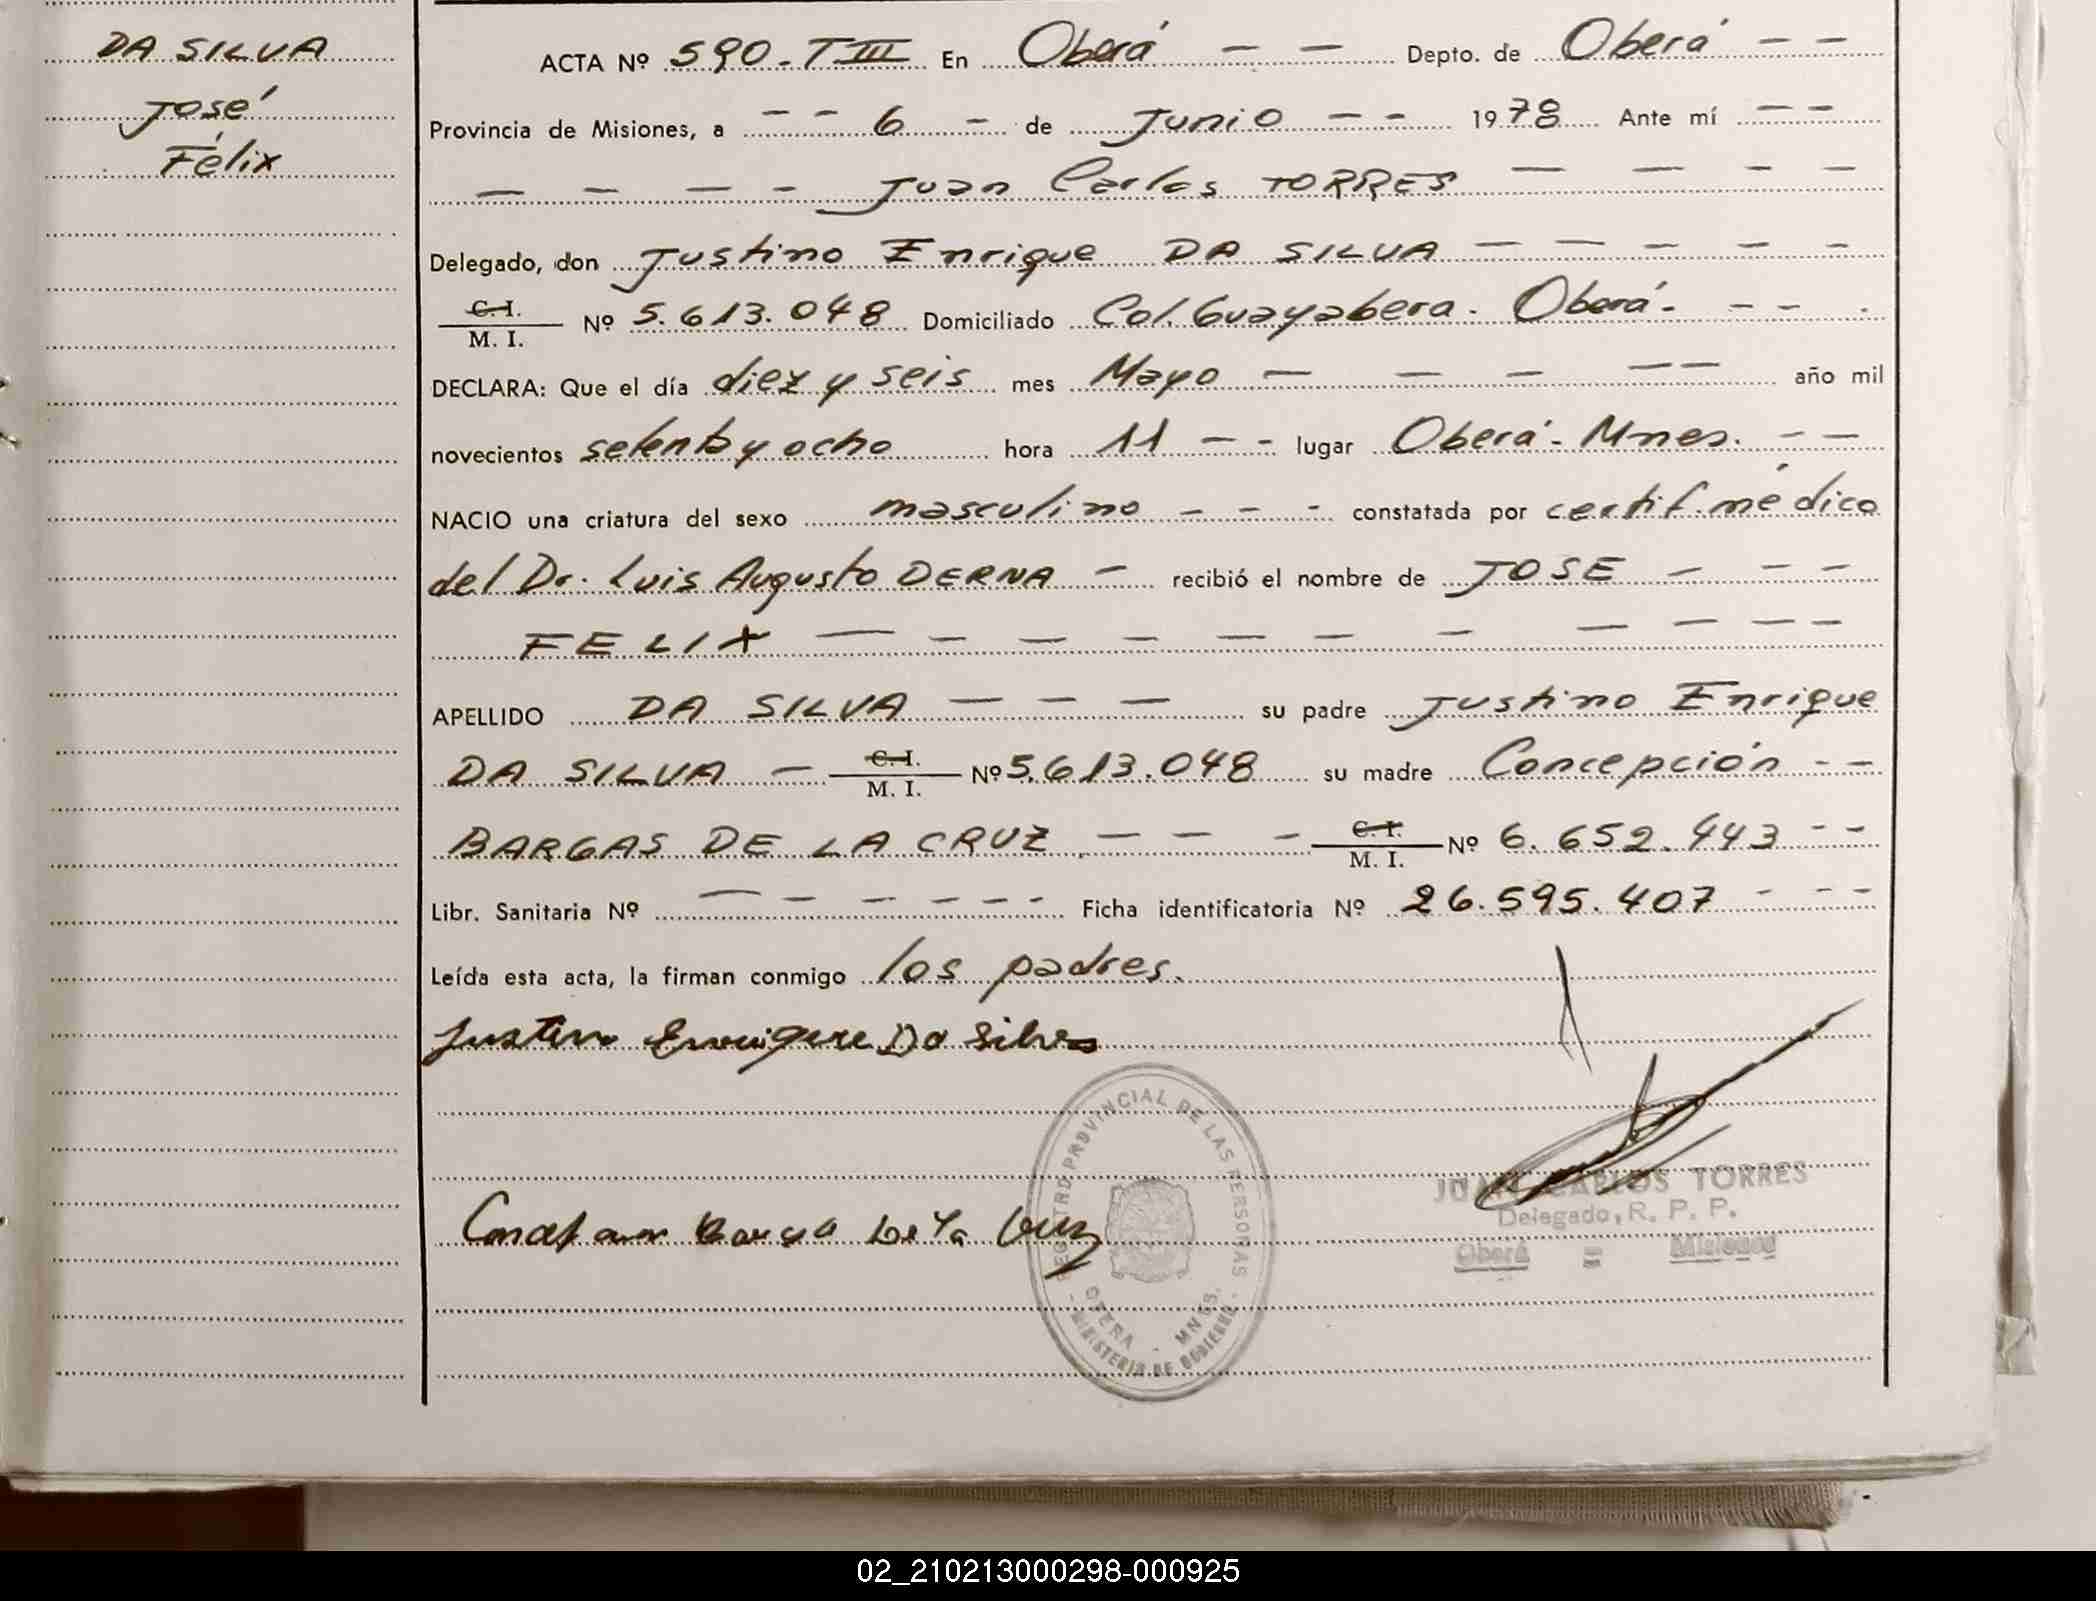 DA SILVA
José
Félix
ACTA Nº 590 - T III En Oberá - - Depto. de Oberá - -
Provincia de Misiones, a - - 6 - de Junio - - 1978 Ante mí - -
- - - - Juan Carlos TORRES - - - -
Delegado, don Justino Enrique DA SILVA - - - - -
C. I.
M. I. Nº 5.613.048 Domiciliado Col. Guayabera. Oberá. - -
DECLARA: Que el día diez y seis mes Mayo - - - - - año mil
novecientos setenta y ocho hora 11 - - lugar Oberá - Mnes. - -
NACIO una criatura del sexo masculino - - - constatada por certif. médico
del Dr. Luis Augusto DERNA - recibió el nombre de JOSE - - -
FELIX - - - - - - - - - - -
APELLIDO DA SILVA - - - su padre Justino Enrique
DA SILVA - C. I.
M. I. Nº 5.613.048 su madre Concepción - -
BARGAS DE LA CRUZ - - - C. I.
M. I. Nº 6.652.443 - -
Libr. Sanitaria Nº - - - - - - Ficha identificatoria Nº 26.595.407 - - -
Leída esta acta, la firman conmigo los padres.
Justino Enrrigere Da Silva
REGISTRO PROVINCIAL DE LAS PERSONAS
MNES.
- MINISTERIO DE GOBIERNO -
JUAN CARLOS TORRES
Delegado, R. P. P.
Oberá = Misiones
De la Cruz
02_210213000298-000925